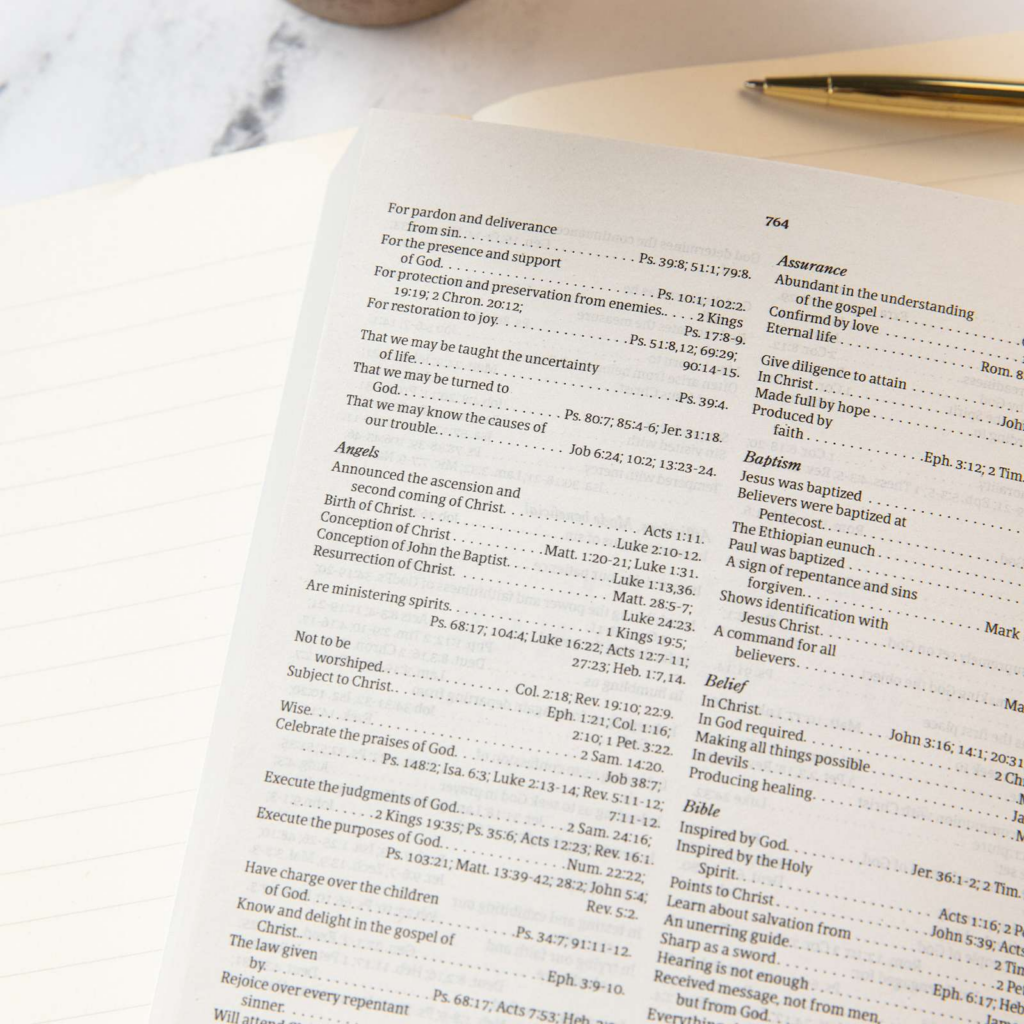 764
For pardon and deliverance
from sin. . . . . . . . . . . . . . . . . . . . . . Ps. 39:8; 51:1; 79:8.
For the presence and support
of God. . . . . . . . . . . . . . . . . . . . . . . . . Ps. 10:1; 102:2.
For protection and preservation from enemies. . . . . 2 Kings
19:19; 2 Chron. 20:12; Ps. 17:8-9.
For restoration to joy. . . . . . . . . . . . . . . Ps. 51:8,12; 69:29;
90:14-15.
That we may be taught the uncertainty
of life. . . . . . . . . . . . . . . . . . . . . . . . . . . . . . . Ps. 39:4.
That we may be turned to
God. . . . . . . . . . . . . . . . . . Ps. 80:7; 85:4-6; Jer. 31:18.
That we may know the causes of
our trouble. . . . . . . . . . . . . . Job 6:24; 10:2; 13:23-24.
Angels
Announced the ascension and
second coming of Christ. . . . . . . . . . . . . . . Acts 1:11.
Birth of Christ. . . . . . . . . . . . . . . . . . . . . . Luke 2:10-12.
Conception of Christ . . . . . . . . . . Matt. 1:20-21; Luke 1:31.
Conception of John the Baptist. . . . . . . . . . . Luke 1:13,36.
Resurrection of Christ. . . . . . . . . . . . . . . . . Matt. 28:5-7;
Luke 24:23.
Are ministering spirits. . . . . . . . . . . . . . . . . 1 Kings 19:5;
Ps. 68:17; 104:4; Luke 16:22; Acts 12:7-11;
27:23; Heb. 1:7,14.
Not to be
worshiped. . . . . . . . . . . . . . Col. 2:18; Rev. 19:10; 22:9.
Subject to Christ. . . . . . . . . . . . . . . . Eph. 1:21; Col. 1:16;
2:10; 1 Pet. 3:22.
Wise. . . . . . . . . . . . . . . . . . . . . . . . . . . . . . 2 Sam. 14:20.
Celebrate the praises of God. . . . . . . . . . . . . . . Job 38:7;
Ps. 148:2; Isa. 6:3; Luke 2:13-14; Rev. 5:11-12;
7:11-12.
Execute the judgments of God. . . . . . . . . . . . 2 Sam. 24:16;
. . . . . . . . . . 2 Kings 19:35; Ps. 35:6; Acts 12:23; Rev. 16:1.
Execute the purposes of God. . . . . . . . . . . . . Num. 22:22;
Ps. 103:21; Matt. 13:39-42; 28:2; John 5:4;
Rev. 5:2.
Have charge over the children
of God. . . . . . . . . . . . . . . . . . . . . . . Ps. 34:7; 91:11-12.
Know and delight in the gospel of
Christ. . . . . . . . . . . . . . . . . . . . . . . . . . . Eph. 3:9-10.
The law given
by. . . . . . . . . . . . . . . . . Ps. 68:17; Acts 7:53; Heb.
Rejoice over every repentant
sinner.
Will attend
Assurance
Abundant in the understanding
of the gospel . . . . . . . . . . . . . . .
Confirmd by love . . . . . . . . . . . . . . .
Eternal life . . . . . . . . . . . . . . . . . . Rom. 8
Give diligence to attain . . . . . . . . . .
In Christ. . . . . . . . . . . . . . . . . . . .
Made full by hope . . . . . . . . . . . . .
Produced by
faith . . . . . . . . . . . . Eph. 3:12; 2 Tim.
Baptism
Jesus was baptized . . . . . . . . . . . . .
Believers were baptized at
Pentecost. . . . . . . . . . . . . . . . .
The Ethiopian eunuch . . . . . . . . . . .
Paul was baptized . . . . . . . . . . . . .
A sign of repentance and sins
forgiven. . . . . . . . . . . . . . . . Mark
Shows identification with
Jesus Christ. . . . . . . . . . . . . . .
A command for all
believers. . . . . . . . . . . . . . . .
Belief
In Christ. . . . . . . . . . . . . John 3:16; 14:1; 20:31
In God required. . . . . . . . . . . . . . . 2 Ch
Making all things possible . . . . . . . .
In devils . . . . . . . . . . . . . . . . . . .
Producing healing. . . . . . . . . . . . . .
Bible
Inspired by God. . . . . . . . . . Jer. 36:1-2; 2 Tim.
Inspired by the Holy
Spirit. . . . . . . . . . . . . . . . Acts 1:16; 2 Pe
Points to Christ . . . . . . . . . . . . John 5:39; Acts
Learn about salvation from . . . . . . . . 2 Tim
An unerring guide. . . . . . . . . . . . . . 2 Pet
Sharp as a sword. . . . . . . . . . . Eph. 6:17; Heb
Hearing is not enough . . . . . . . . . . .
Received message, not from men,
but from God. . . . . . . . . . . . . .
Everything